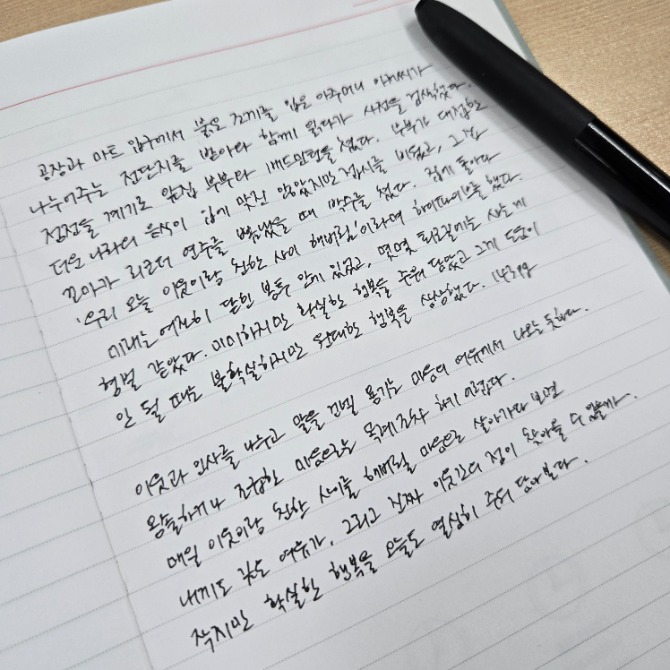 공장과 마트 입구에서 붉은 조끼를 입은 아주머니 아저씨가
나누어주는 전단지를 받아와 함께 읽다가 사전을 검색했다.
정전을 계기로 앞집 부부와 배드민턴을 쳤다. 부부가 대접한
더운 나라의 음식이 입에 맞진 않았지만 접시를 비웠고, 그 집
꼬마가 리코더 연주를 뽐냈을 때 박수를 쳤다. 집에 돌아와
'우리 오늘 이웃이랑 친한 사이 해버림'이라며 하이파이브를 했다.
미래는 여전히 닫힌 봉투 안에 있었고, 몇몇 퇴근길에는 사는 게
형벌 같았다. 미미하지만 확실한 행복을 주워 담았고 그게 도움이
안 될 때는 불확실하지만 원대한 행복을 상상했다. 143쪽
이웃과 인사를 나누고 말을 건넬 용기는 마음의 여유에서 나오는 듯하다.
왕쫄하거나 조급한 마음으로는 목례조차 하기 어렵다.
매일 이웃이랑 친한 사이를 해버릴 마음으로 살아가다 보면
내게도 깃든 여유가, 그리고 진짜 이웃간의 정이 찾아올 수 있을까.
작지만 확실한 행복을 오늘도 열심히 주워 담아본다.